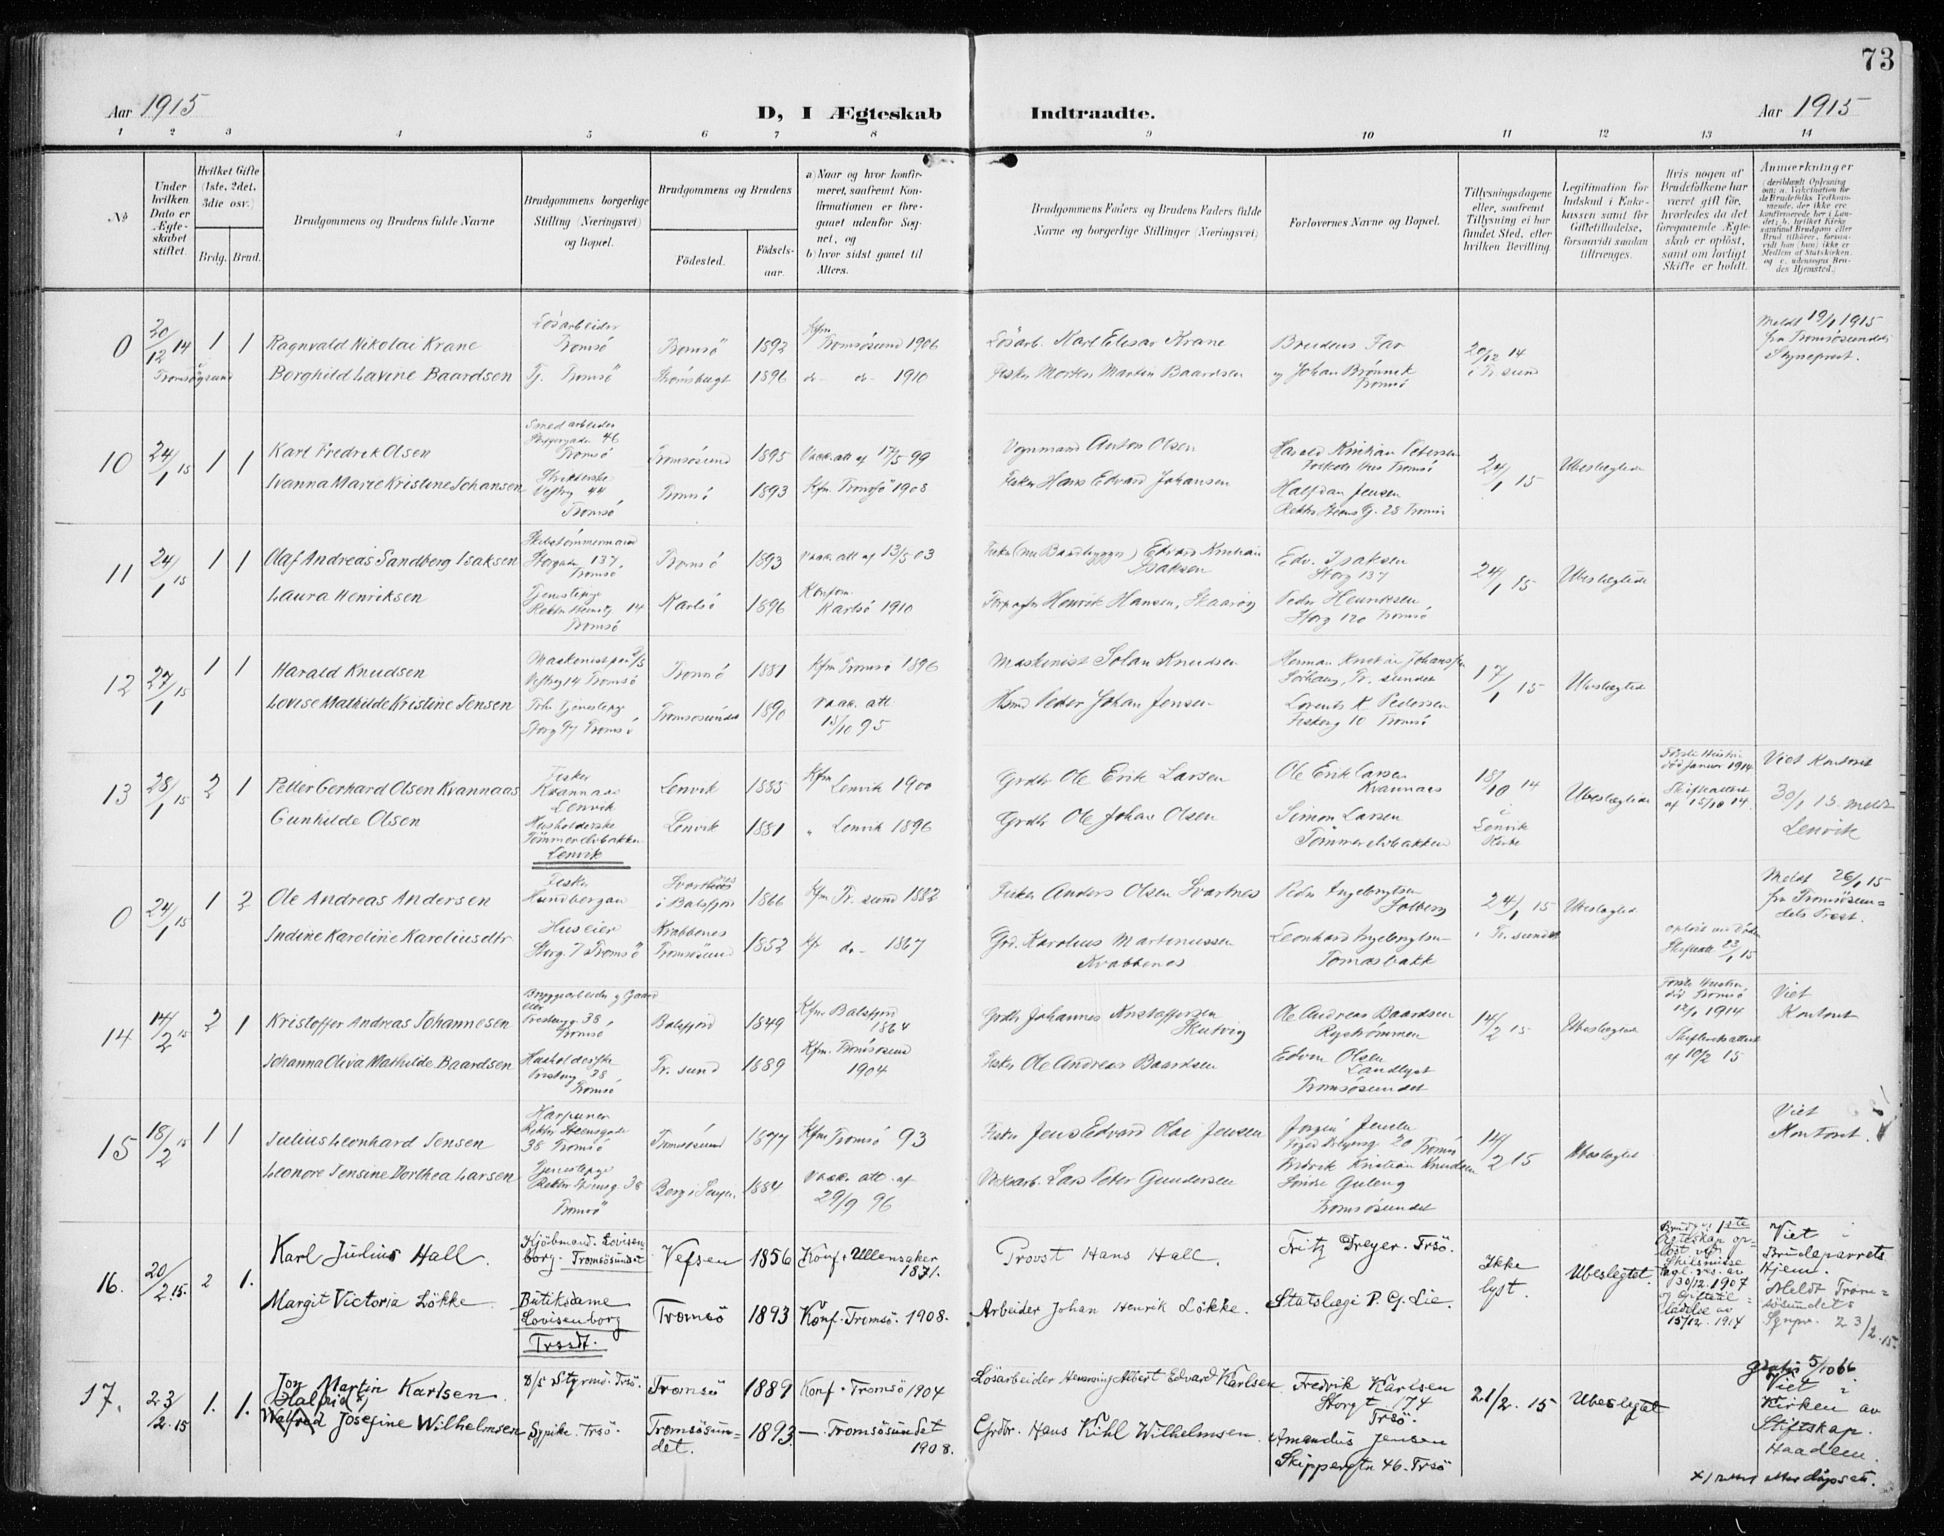 73
Aar 1915 D, I Ægteskab Indtraadte. Aar 1915
1 2 3 4 5 6 7 8 9 10 11 12 13 14
№
Under hvilken Dato er Ægteskabet stiftet
Hvilket Gifte (1ste, 2det, 3die osv.)
Brdg. Brud.
Brudgommens og Brudens fulde Navne
Brudgommens borgerlige Stilling (Næringsvei) og Bopæl.
Brudgommens og Brudens
Fødested. Fødselsaar.
a) Naar og hvor konfirmeret, saafremt Konfirmationen er foregaaet udenfor Sognet, og
b) hvor sidst gaaet til Alters.
Brudgommens Faders og Brudens Faders fulde Navne og borgerlige Stillinger (Næringsvei)
Forlovernes Navne og Bopæl.
Tillysningsdagene eller, saafremt Tillysning ei har fundet Sted, efter hvilken Bevilling.
Legitimation for Indskud i Enkekassen samt for Giftetilladelse, forsaavidt saadan tiltrænges.
Hvis nogen af Brudefolkene har været gift før, hvorledes da det foregaaende Ægteskab er opløst, samt om lovligt Skifte er holdt.
Anmerkninger
0 20/12 14 1 1 Ragnvald Nikolai Krane Løsarbeider Tromsø Tromsø 1892 Kfm Tromsøsund 1906 Løsarb. Karl Elisar Krane Brudens Far 20/12 14 Meldt 19/1 1915 fra Tromsøsundets Sogneprest.
i Tromsøsund Borghild Lavine Baardsen Tj. Tromsø 1896 do- do- 1910 Fisker Morten Martin Baardsen og Johan Tromsø i Tr. sund
10 24/1 15 1 1 Karl Fredrik Olsen Smedarbeider Skippergade 46 Tromsø Tromsøsund 1895 Vacc. att af 17/5 99 Vognmand Anton Olsen Harald Kristian Petersen Tromsø 24/1 15 Ubeslægtede
Ivanna Marie Kristine Johansen Vestrg 44 Tromsø Tromsø 1893 Kfm Tromsø 1908 Fisker Hans Edvard Johansen Halfdan Jensen Rektor Steens G. 28 Tromsø
11 24/1 15 1 1 Olaf Andreas Sandberg Isaksen Skibstømmermand Storgade 137, Tromsø Tromsø 1893 Vacc. att af 13/5 03 Fisker (nu Baadbygger) Edvard Kristian Isaksen Edv. Isaksen Storg 137 24/1 15 Ubeslægtede
Laura Henriksen Tjenestepge Rektor Steensg 14 Tromsø Karlsø 1896 Konfom. Karlsø 1910 Henrik Hansen, Peder Henriksen Storg 120 Tromsø
12 27/1 15 1 1 Harald Knudsen Maskinist Vestrg 14 Tromsø Tromsø 1881 Kfm Tromsø 1896 Maskinist Johan Knudsen Herman Kristian Johansen Tr. sundet 17/1 15 Ubeslægtede
Lovise Mathilde Kristine Jensen Tjenestepge Storg 97 Tromsø Tromsøsundet 1890 Vacc. att 15/10 95 Hsmd Peder Johan Jensen Lorents K Pedersen Fiskerg 10 Tromsø
13 28/1 15 2 1 Petter Gerhard Olsen Kvannaas Fisker Kvannaas Lenvik Lenvik 1885 Kfm Lenvik 1900 Grdbr Ole Erik Larsen Ole Erik Larsen Kvannaas 18/10 14 Ubeslægtede Første Hustru død Januar 1914 Skifteattest af 15/10 14. Viet Kontoret
Gunhilde Olsen Husholderske Tømmerelvbakken Lenvik Lenvik 1881 " Lenvik 1896 Grdbr Ole Johan Olsen Simon Larsen Tømmerelvbakken i Lenvik Kirke 30/1 15. meldt Lenvik
0 24/1 15 1 2 Ole Andreas Andersen Fisker Hundbergan Svartnes i Balsfjord 1866 Kfm Tr. sund 1882 Fisker Anders Olsen Svartnes Peder Ingebrigtsen Solberg 24/1 15 Ubeslægtede Meldt 26/1 15 fra Tromsøsundets Prest.
Indine Karoline Karoliusdtr Huseier Storg 7 Tromsø Krabbenes Tromsøsund 1852 Kf do- 1867 Grd. Karolius Martinussen Krabbenes Leonhard Ingebrigtsen Tomasbakk i Tr. sundet opløst ved Døden Skifteatt 23/1 15
14 14/2 15 2 1 Kristoffer Andreas Johannesen Bryggearbeider og Gaardeier 38 Tromsø Balsfjord 1849 Kfm Balsfjord 1864 Grdbr Johannes Kristoffersen Ole Andreas Baardsen Rystrømmen 14/2 15 Ubeslægtede Første Hustru død Tromsø 1914 Skifteretsattest af 10/2 15 Viet Kontoret
Johanna Oliva Mathilde Baardsen Husholderske 38 Tromsø Tr. sund 1889 Kfm. Tromsøsund 1904 Fisker Ole Andreas Baardsen Edvin Olsen Landlyst Tromsøsundet
15 18/2 15 1 1 Julius Leonhard Jensen Harpuner Rektor Steensgade 38 Tromsø Tromsøsund 1877 Kfm Tromsø 93 Fisker Jens Edvard Olai Jensen Jørgin Jensen 20 Tromsø 14/2 15 Ubeslægtet Viet Kontoret.
Leonore Jensine Dorthea Larsen Tjenestepge Rektor Steensg 38 Tromsø Berg i Senjen 1884 Vacc. att. af 29/9 96 Lars Peter Gundersen Fredrik Kristian Knudsen Tromsøsundet
16. 20/2 15. 2 1. Karl Julius Hall. Kjöbmand. Lovisenborg. Tromsøsundet Vefsen 1856 Konf. Ullensaker 1871. Provst Hans Hall. Fritz Dreyer. Trsö. Ikke lyst. Ubeslegtet. Brudg.s 1ste egteskap opløst ved Skilsmisse kgl. res. av 30/12 1907 og Giftetilladelse av 15/12. 1914 Viet i Brudeparrets Hjem. Meldt Tromsøsundets Sgnpr. 23/2. 15.
Margit Victoria Lökke. Butiksdame Lovisenborg Trssdt. Tromsö 1893 Konf. Tromsö. 1908. Arbeider Johan Henrik Lökke. Statslægi P. G. Lie.
17. 23/2. 15 1. 1. Jon Martin Karlsen. Styrmd. Trsö. Tromsö 1889 Konf. Tromsö 1904 Lösarbeider Henning Albert Edvard Karlsen Fredrik Karlsen Storgt 74 Trsö. 21/2. 15 Ubeslegtet gratis 5/10 66. Viet i Kirken av Stiftskap. Haadem.
Halfrid x) Walfred Josefine Wilhelmsen Sypike. Trsö. Tromsösundet. 1893. — Tromsösundet 1908. Grdbr. Hans Kihl Wilhelmsen. Amandus Jensen Skippergtn 46. Trsö
x) rettet etter dåpsatt.